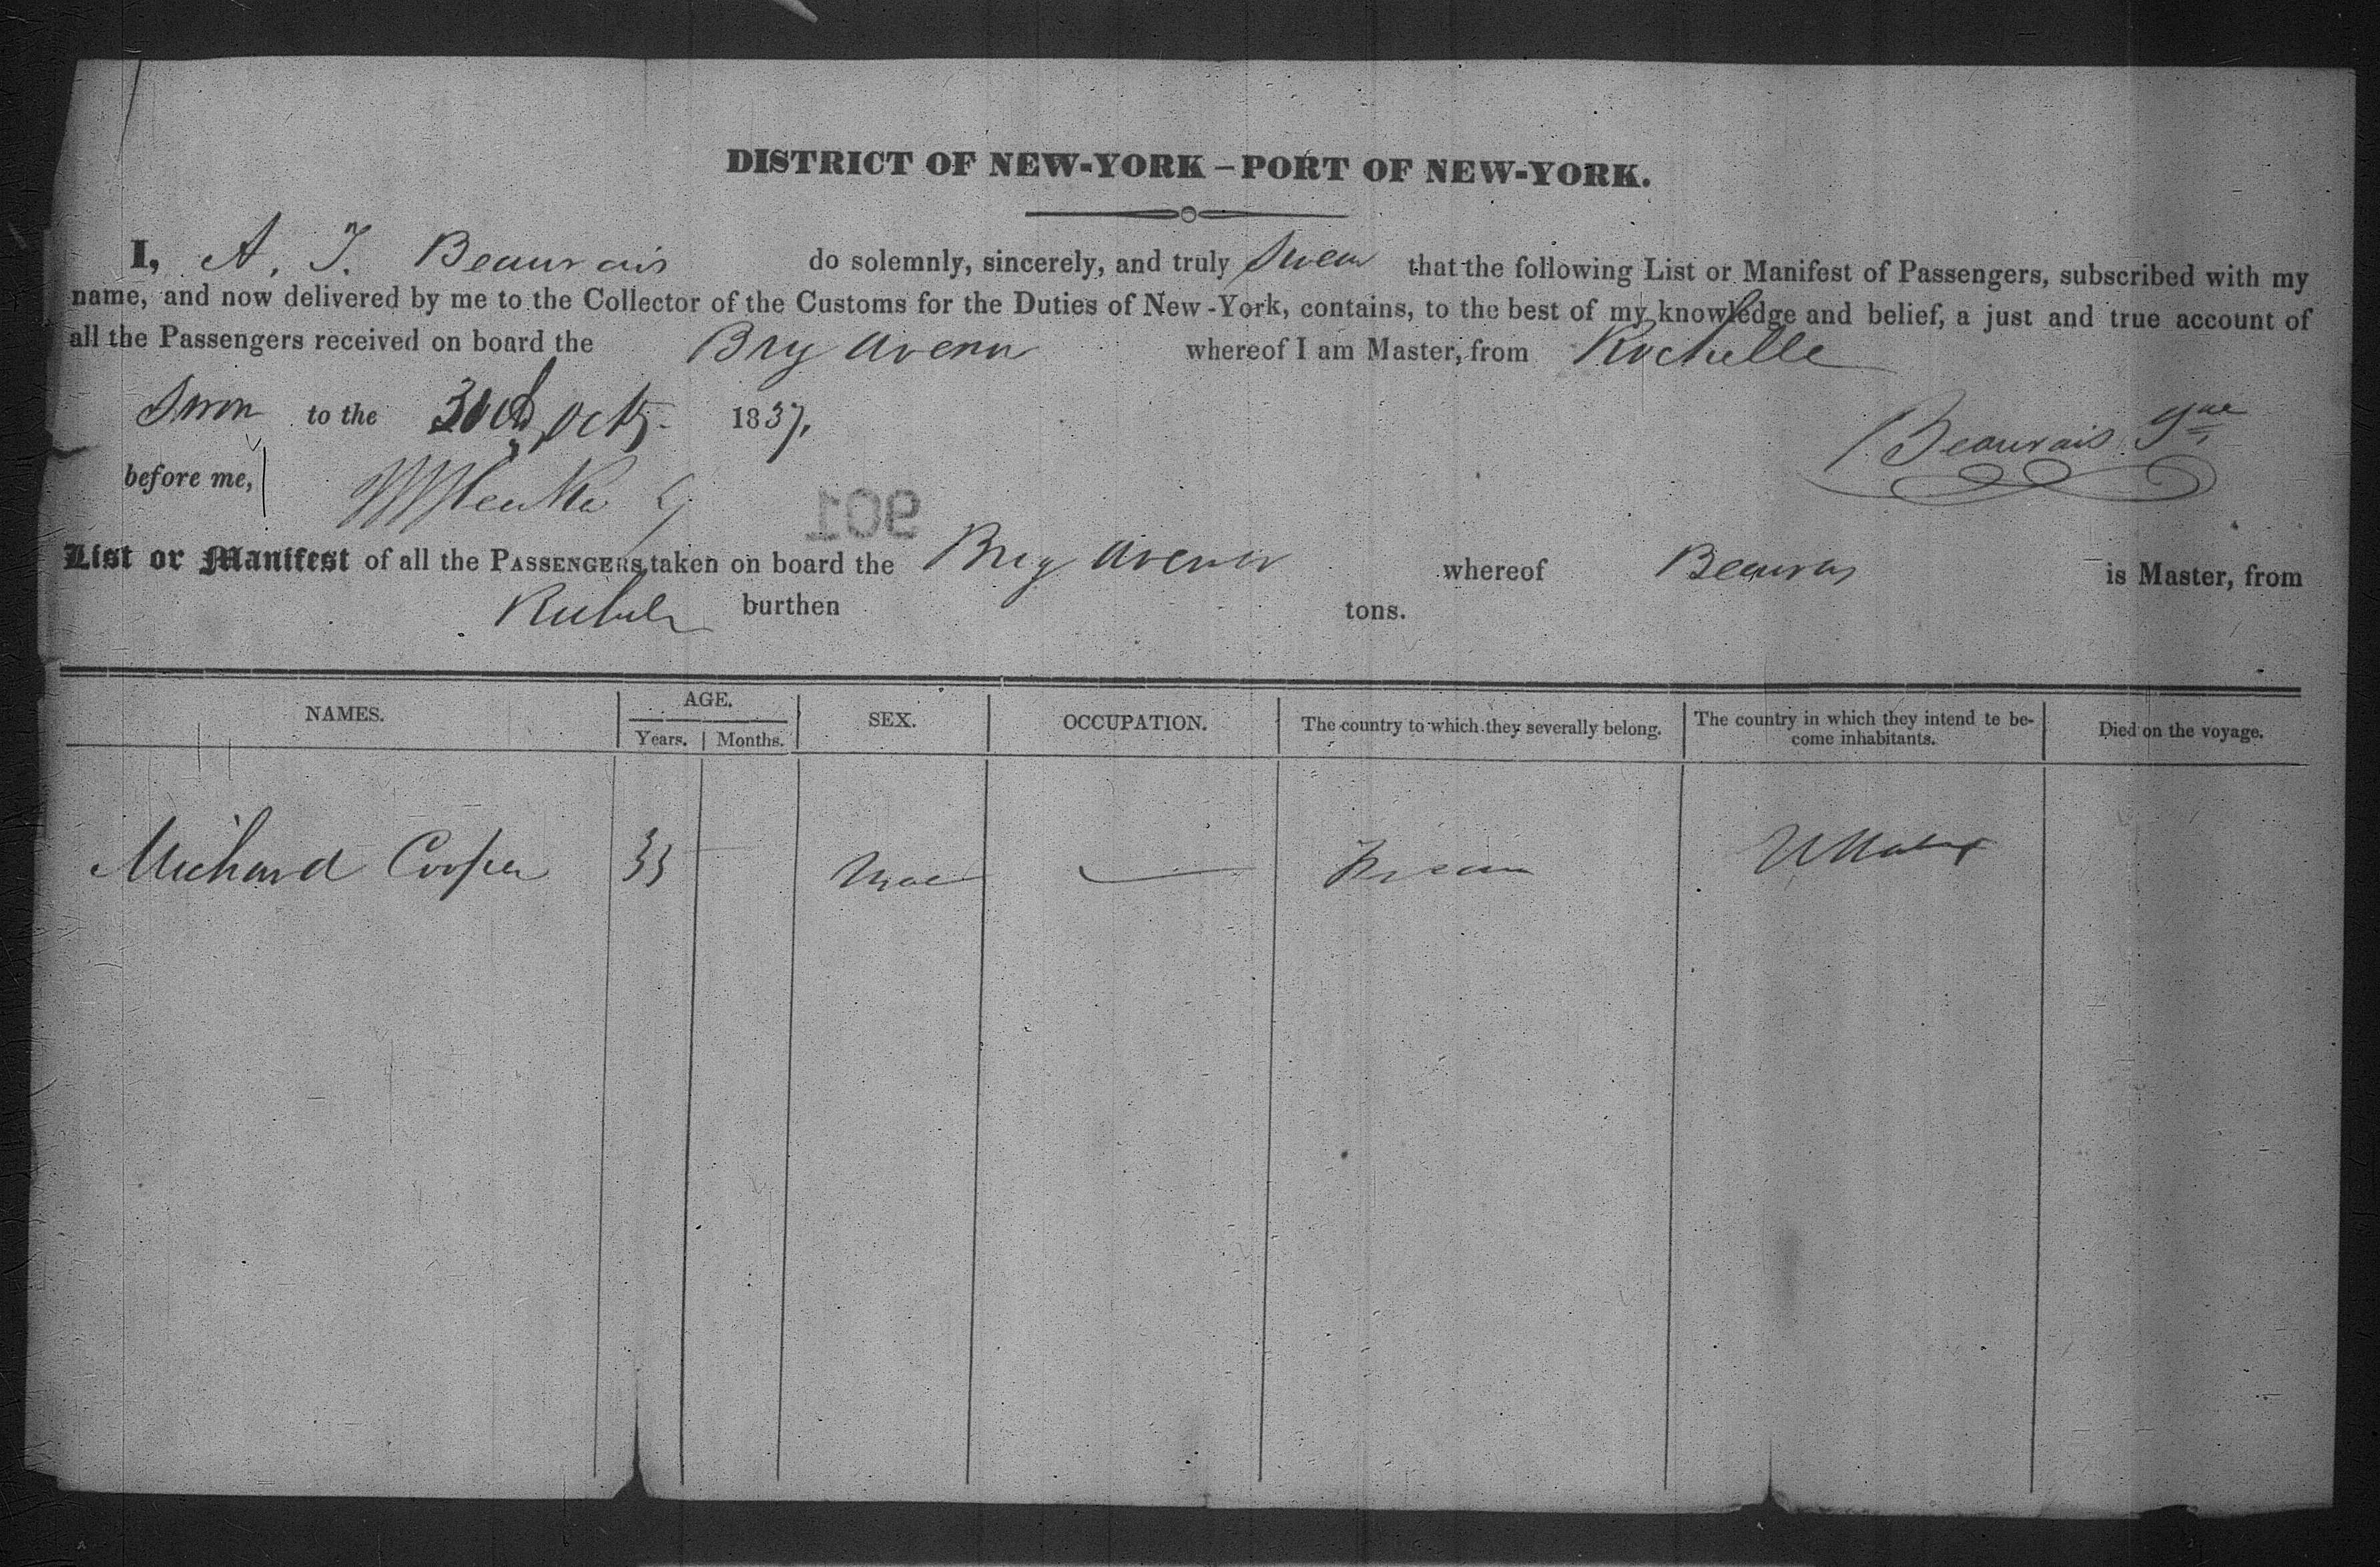 DISTRICT OF NEW-YORK – PORT OF NEW-YORK.
I, A. J. Beauvais do solemnly, sincerely, and truly swear that the following List or Manifest of Passengers, subscribed with my
name, and now delivered by me to the Collector of the Customs for the Duties of New-York, contains, to the best of my knowledge and belief, a just and true account of
all the Passengers received on board the Brig Avenir whereof I am Master, from Rochelle
Sworn to the Oct 1837.
Beauvais Jne
before me,
901
List or Manifest of all the PASSENGERS taken on board the Brig Avenir whereof Beauvais is Master, from
burthen tons.
NAMES. AGE. SEX. OCCUPATION. The country to which they severally belong. The country in which they intend te be-
come inhabitants. Died on the voyage.
Years. Months.
Michard Cooper 33 Male France U States